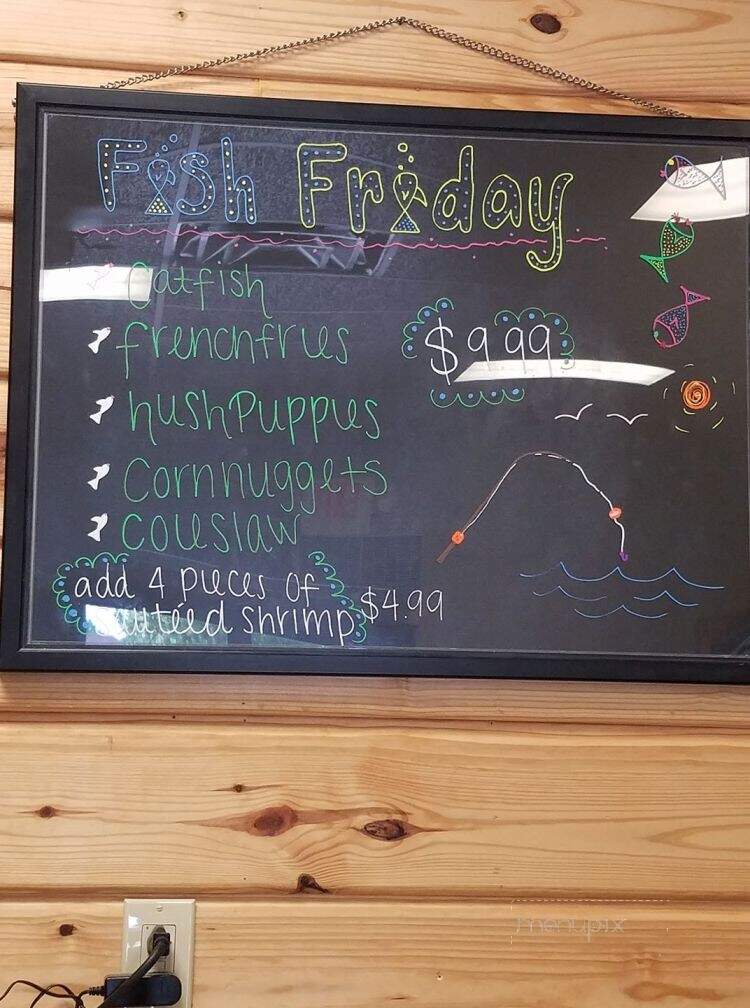 Fish Friday
Catfish
frenchfries
$9.99
hushpuppies
Cornnuggets
coleslaw
add 4 pieces of
sauteed shrimp $4.99
menupix